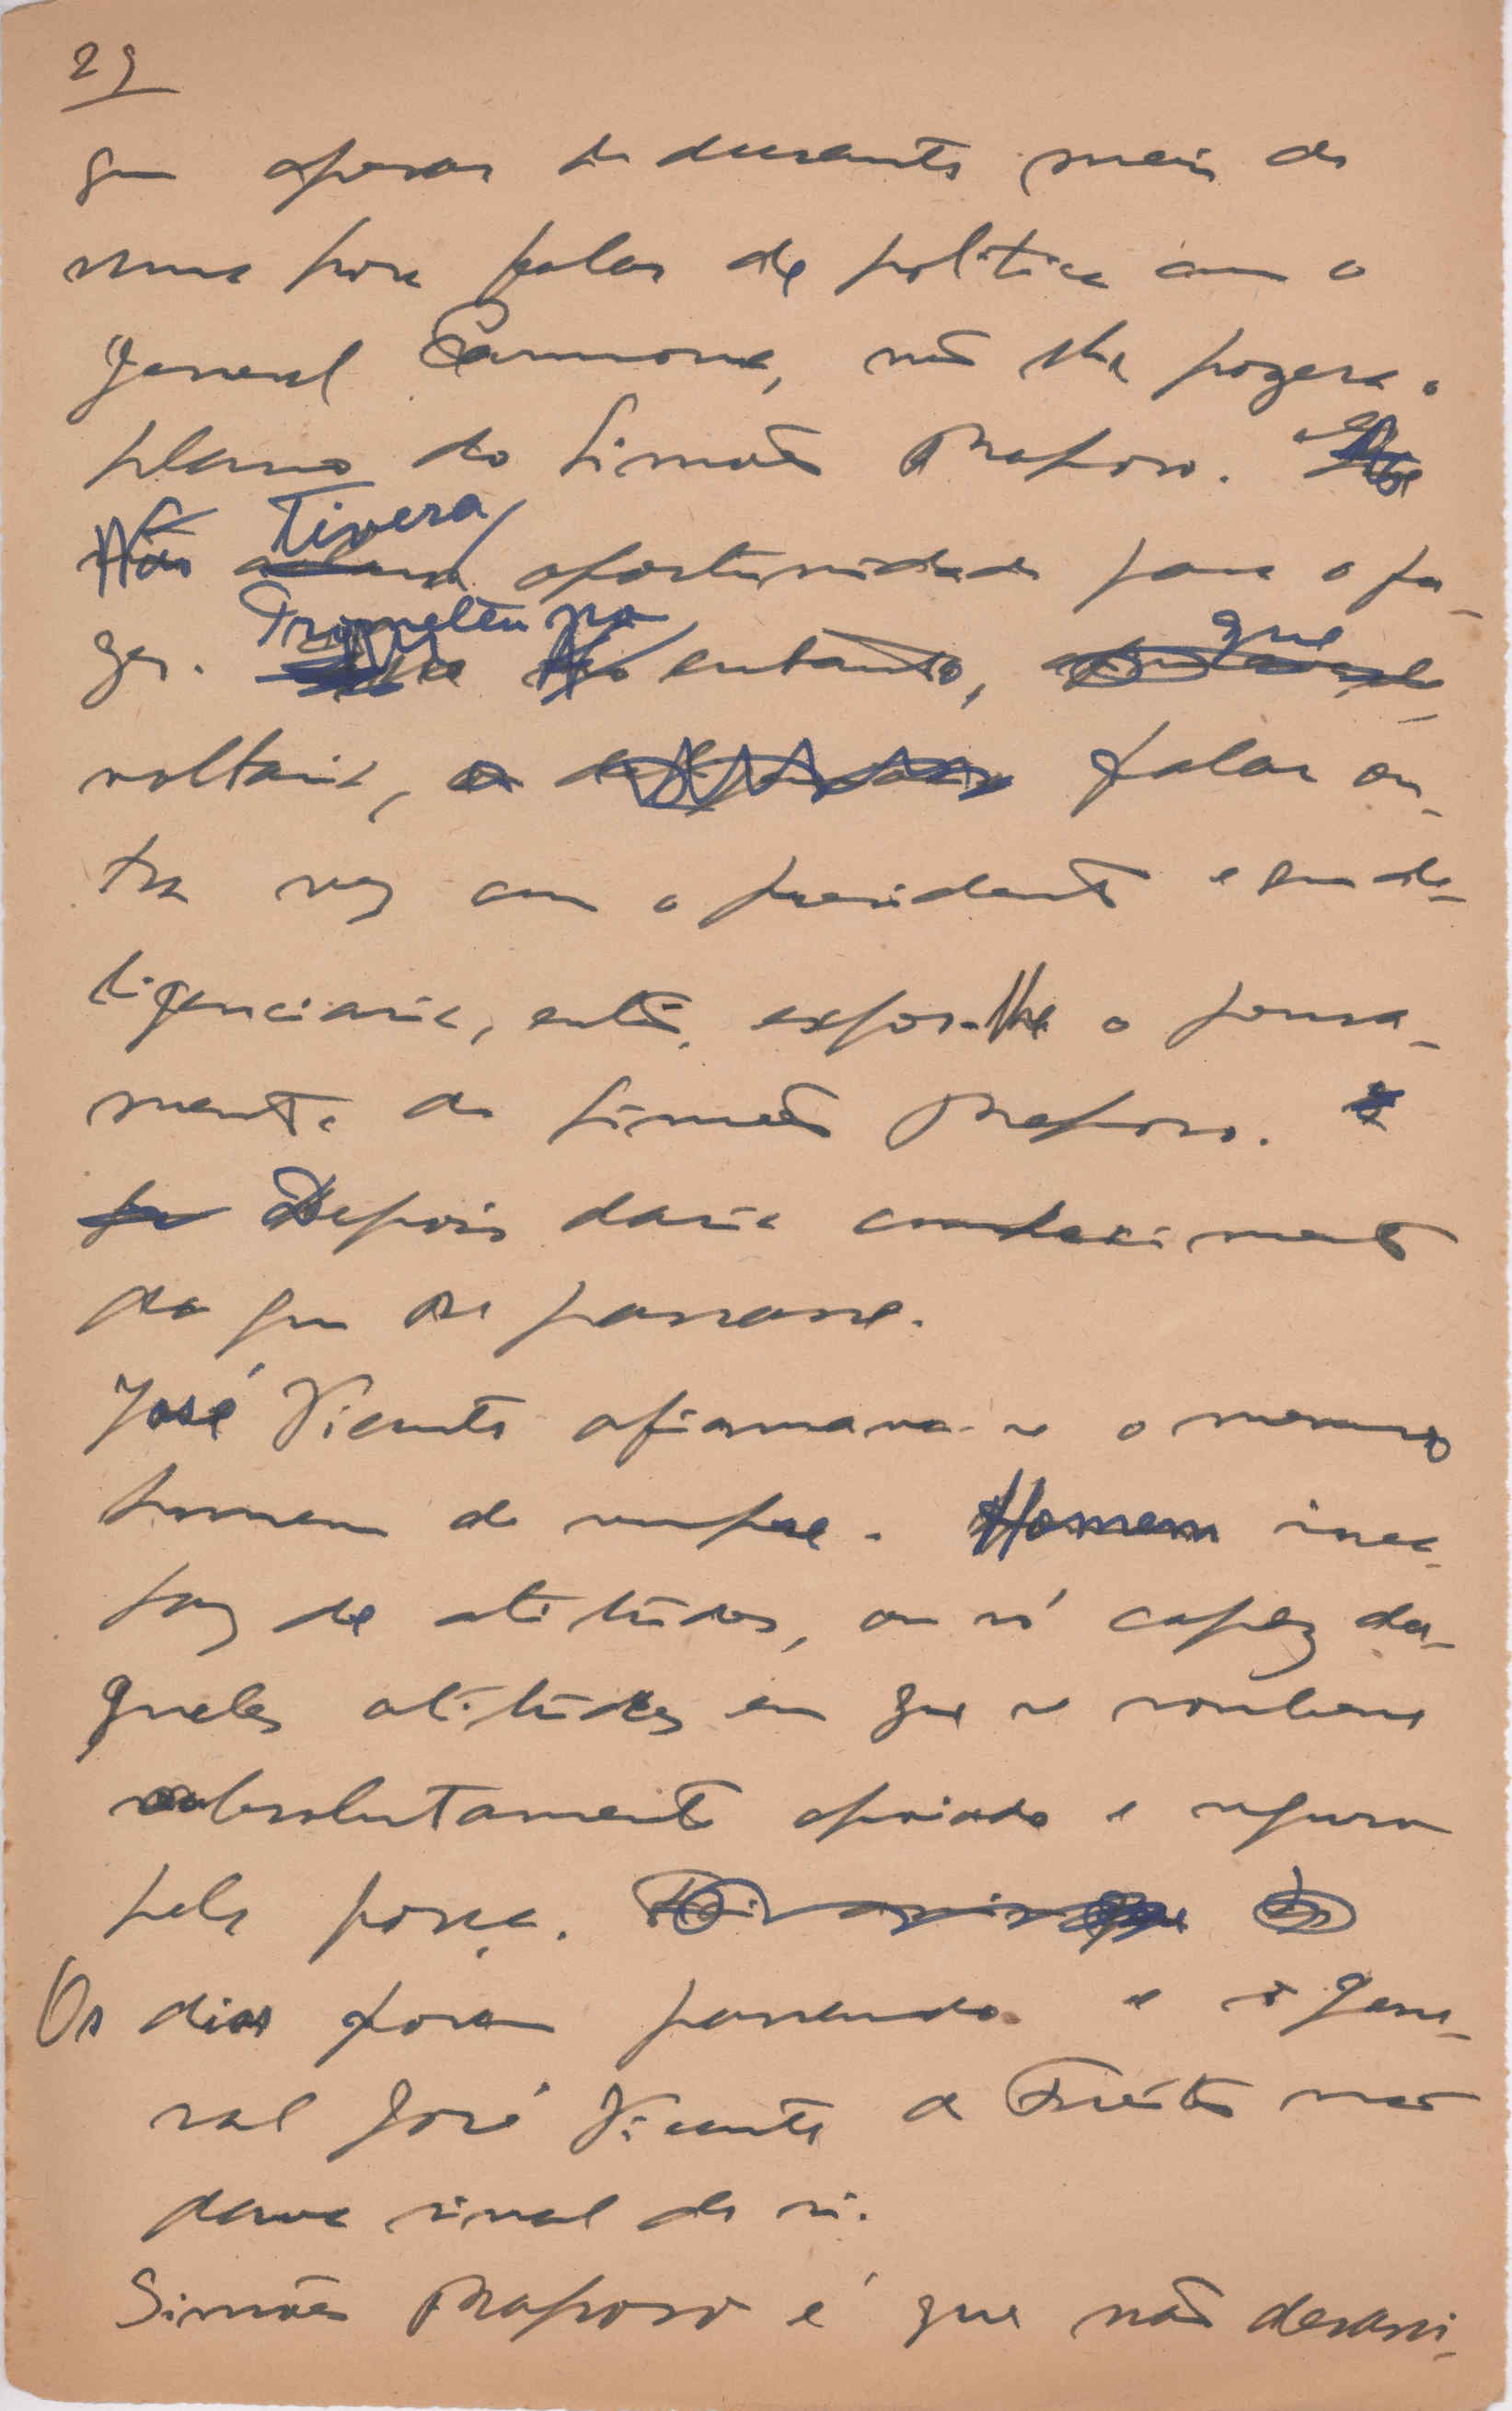 29
que apesar de durante mais de
uma hora falar de politica com o
general Carmona, não lhe pozera o
plano do Simões Raposo.
Não tivera oportunidade para o fa-
zer. Prometeu no entanto, que
voltaria, a falar ou-
tra vez com o presidente e que di-
ligenciaria, então, expor-lhe o pensa-
mento do Simões Raposo.
Depois daria conhecimento
do que se passasse.
José Vicente afirmava-se o mesmo
homem de sempre. Homem inca-
paz de atitudes, ou só capaz da-
quelas atitudes em que se soubesse
absolutamente apoiado e seguro
pela força.
Os dias foram passando e o gene-
ral José Vicente de Freitas não
dava sinal de si.
Simões Raposo é que não desani-